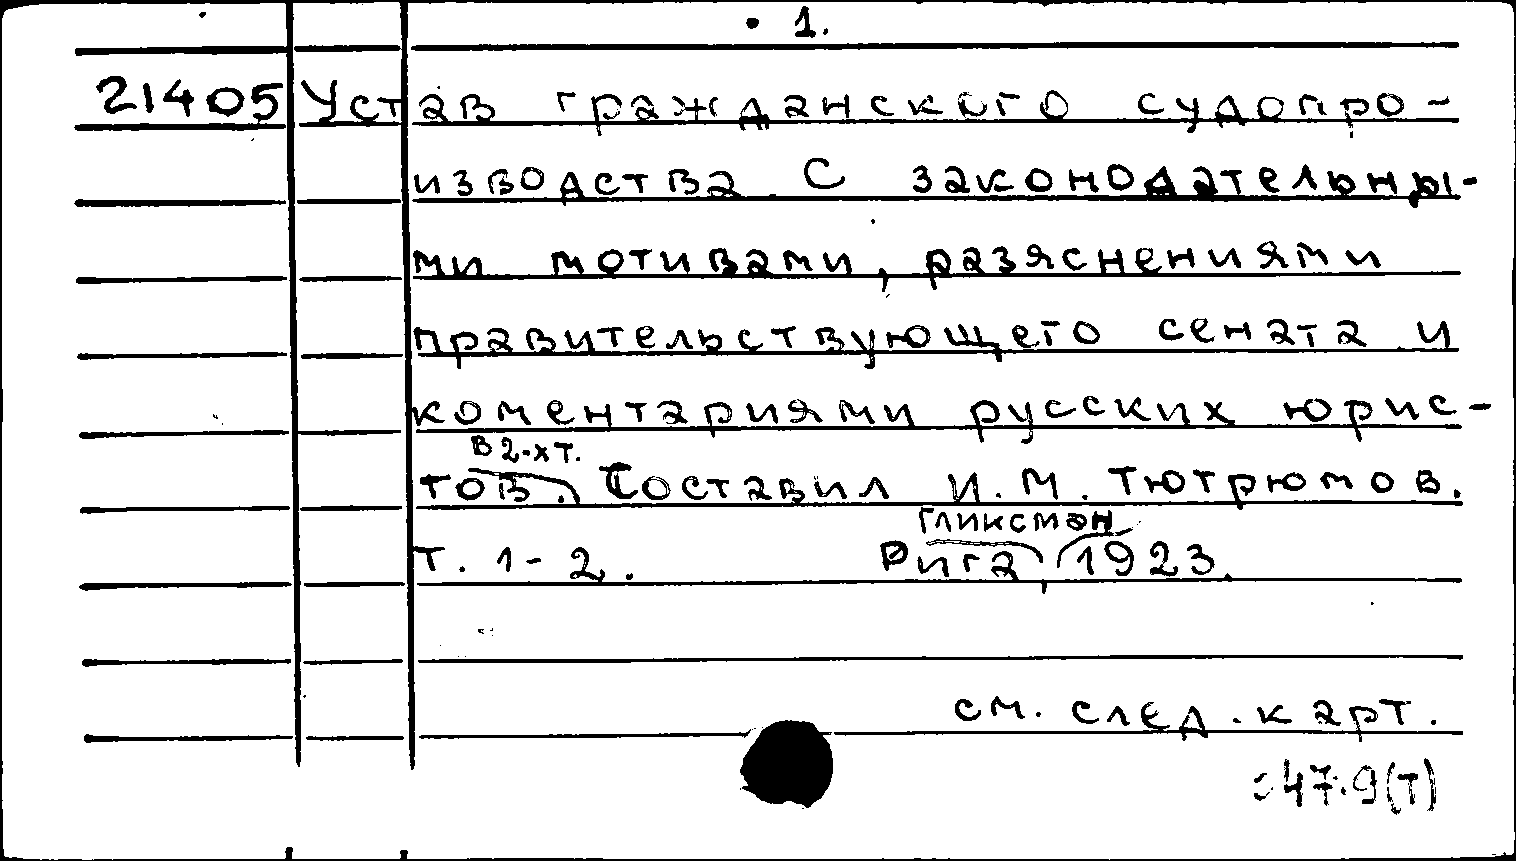 1.
21405 Устав гражданского судопро-
изводства. С законодательны-
ми мотивами, разяснениями
правительствующего сената и
коментариями русских юрис-
в 2-х т.
тов. Составил И.М. Тютрюмов.
Гликсман
Т. 1-2. Рига, 1923.
см. след. карт.
347.9(Т)